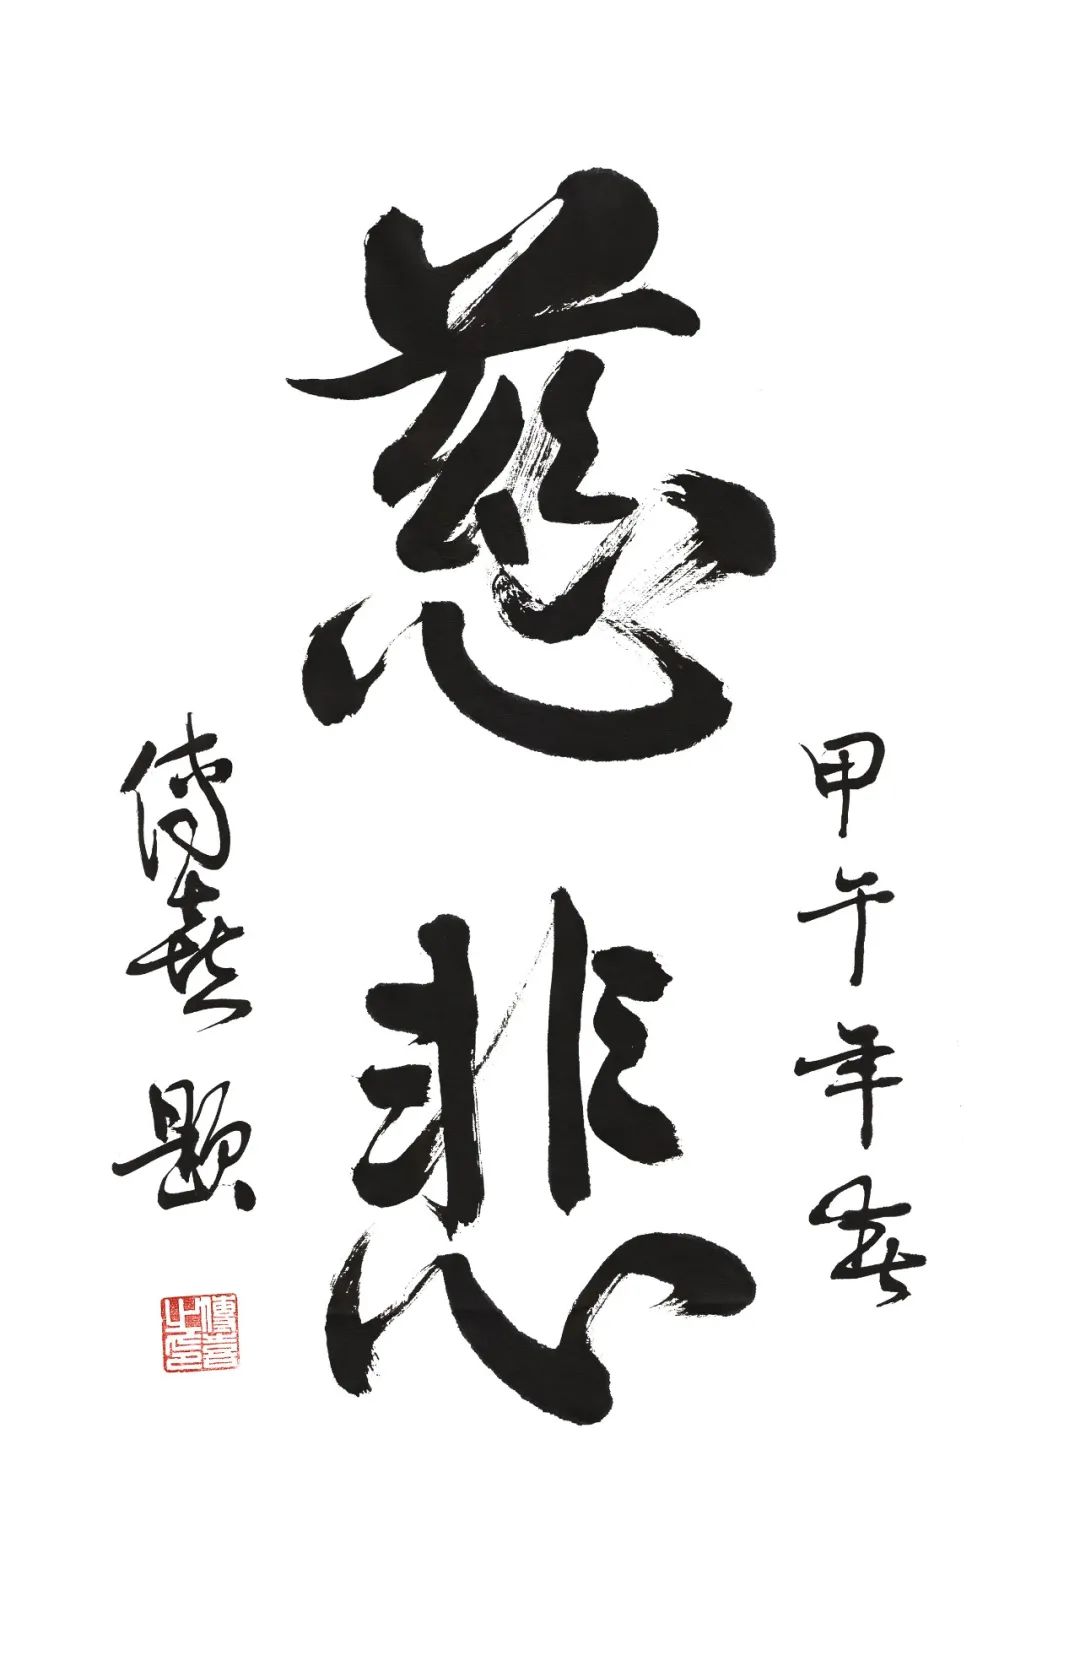 甲午年春
慈悲
傳喜題
傳喜之印